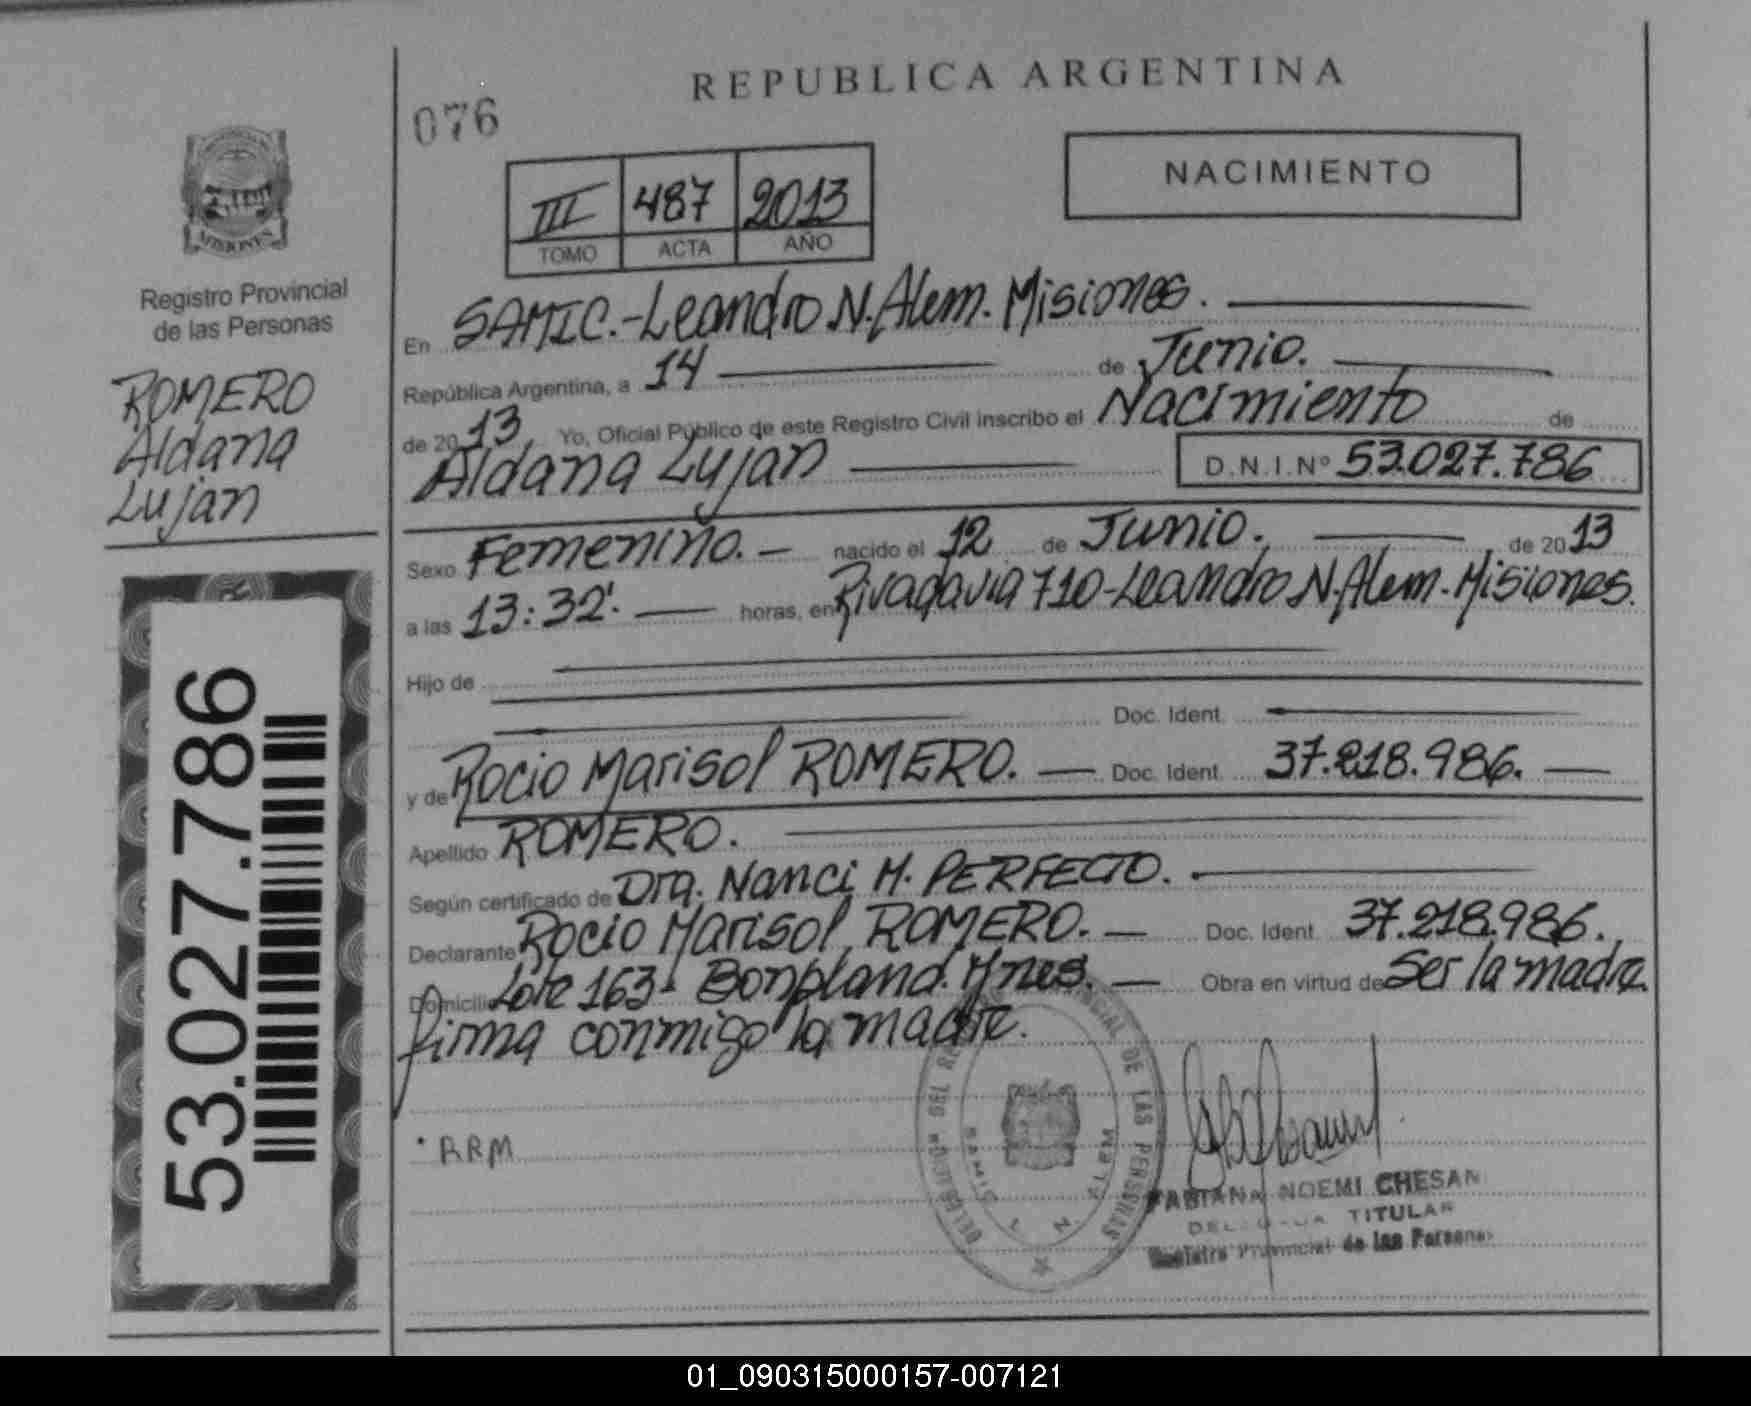 REPUBLICA ARGENTINA
076
NACIMIENTO
III 487 2013
TOMO ACTA AÑO
MISIONES
Registro Provincial
de las Personas
ROMERO
Aldana
Lujan
53.027.786
En SAMIC.-Leandro N. Alem. Misiones.
República Argentina, a 14 de Junio.
de 2013, Yo, Oficial Público de este Registro Civil inscribo el Nacimiento de
Aldana Lujan D.N.I.Nº 53.027.786
Sexo Femenino. nacido el 12 de Junio. de 2013
a las 13:32'. horas, en Rivadavia 710-Leandro N. Alem. Misiones.
Hijo de
Doc. Ident.
y de Rocio Marisol ROMERO. Doc. Ident. 37.218.986.
Apellido ROMERO.
Según certificado de Dra. Nanci M. PERFECTO.
Declarante Rocio Marisol ROMERO. Doc. Ident. 37.218.986.
Domicilio Lote 163- Bonpland. Mnes. Obra en virtud de Ser la madre.
firma conmigo la madre.
RRM
DEL REGISTRO PROVINCIAL DE LAS PERSONAS
SAMIC L. N. ALEM
FABIANA NOEMI CHESAN
TITULAR
Registro Provincial de las Personas
01_090315000157-007121